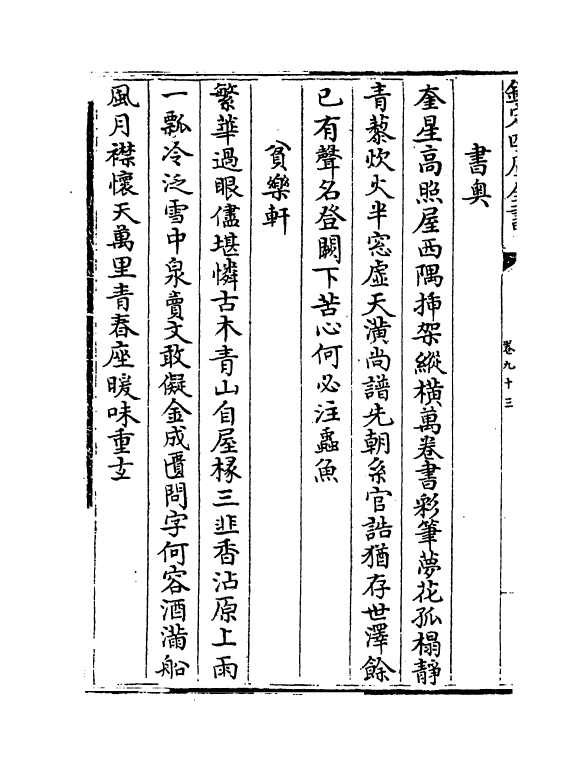 欽定四庫全書
卷九十三
書奥
奎星高照屋西隅挿架縱横萬卷書彩筆夢花孤榻靜
青藜炊火半窓虚天潢尚譜先朝系官誥猶存世澤餘
已有聲名登闕下苦心何必注蟲魚
貧樂軒
繁華過眼儘堪憐古木青山自屋椽三韭香沾原上雨
一瓢冷泛雪中泉賣文敢儗金成匱問字何容酒滿船
風月襟懷天萬里青春座暖味重玄